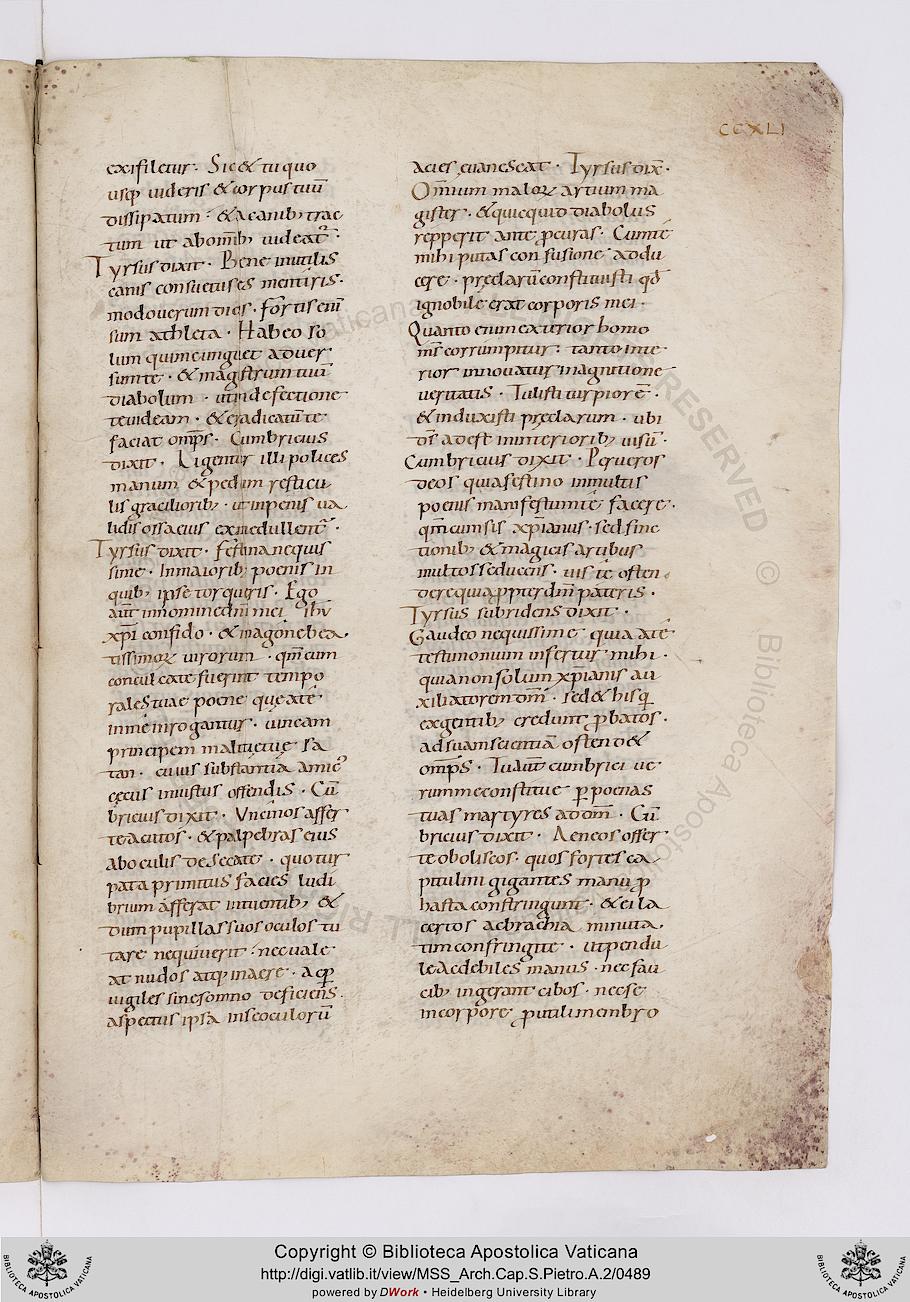 CCXLI
exisiletur. Sic & tu quo
usq; uideris & corpus tuū
dissipatum. & a canib; trac
tum ut abomīb; uideat᷑.
Tyrsus dixit. Bene inutilis
canis consuetus es mentiris.
modo uerum dicis. fortis enī
sum athleta. Habeo so
lum qui me unguet aduer
sum te. & magistrum tuū
diabolum. ut in defectione
te uideam. & eradicatū te
faciat omp̄s. Cumbricius
dixit. Ligentur illi polices
manum & pedum resticu
lis gracilioribꝫ. ut impensi ua
lidis ossa eius exmedullent᷑.
Tyrsus dixit. festina nequis
sime. In maioribꝫ poenis in
quibꝫ ipse torqueris. Ego
aūt in nomine dn̄i mei ihū
xp̄i confido. & in agone bea
tissimorꝝ uirorum. qm̄ cum
conculcate fuerint tempo
rales tuae poene que a te
in me inrogantur. uincam
principem malitie tue sa
tan. cuius substantia amic᷒
cecus inuistus offendis. Cū
bricius dixit. Uncinos affer
te acutos. & palpebras eius
ab oculis desecate. quo tur
pata primitus facies ludi
brium afferat intuentibꝫ &
dum pupillas suos oculos tu
tare nequiuerit. nec uale
at nudos atq; inaere. ac ꝑ
uigiles sine somno deficiens.
aspectus ipsa in se oculorū
acies euanescat. Tyrsus dix̄.
Omnium malorꝝ artium ma
gister. & quicquid diabolus
repperit ante ꝓcuras. Cum te
mihi putas confusione addu
cere. preclarū constituisti qd̄
ignobile erat corporis mei.
Quanto enim exterior homo
mīs corrumpitur: tanto inte
rior innouatur magnitudine
ueritatis. Tulisti turpiorē.
& induxisti preclarum. ubi
dn̄s adest in interioribꝫ uisū.
Cumbricius dixit. Per ueros
deos quia festino in multis
poenis manifestum te facere.
qm̄ cum sis xp̄ianus. sed sinc
tionibꝫ & magicis artibus
multos seducens. uis te osten
dere quia ꝓpter dn̄m pateris.
Tyrsus subridens dixit.
Gaudeo nequissime quia a te
testimonium infertur mihi.
quia non solum xp̄ianis au
xiliatorem dn̄m. sed & hisq;
ex gentibꝫ credunt ꝓbatos.
ad suam scientiā ostendet
omp̄s. Tu aūt cumbrici ue
rum me constitue ꝑ poenas
tuas martyres ad dn̄m. Cū
bricius dixit. Aeneos offer
te oboliscos. quos fortes ca
pitulini gigantes manu ꝑ
hasta constringunt. & ei la
certos ac brachia minuta
tim confringite. ut pendu
le ac debiles manus. nec fau
cibꝫ ingerant cibos. nec se
in corpore ꝓ utili membro
Copyright © Biblioteca Apostolica Vaticana
http://digi.vatlib.it/view/MSS_Arch.Cap.S.Pietro.A.2/0489
powered by DWork • Heidelberg University Library